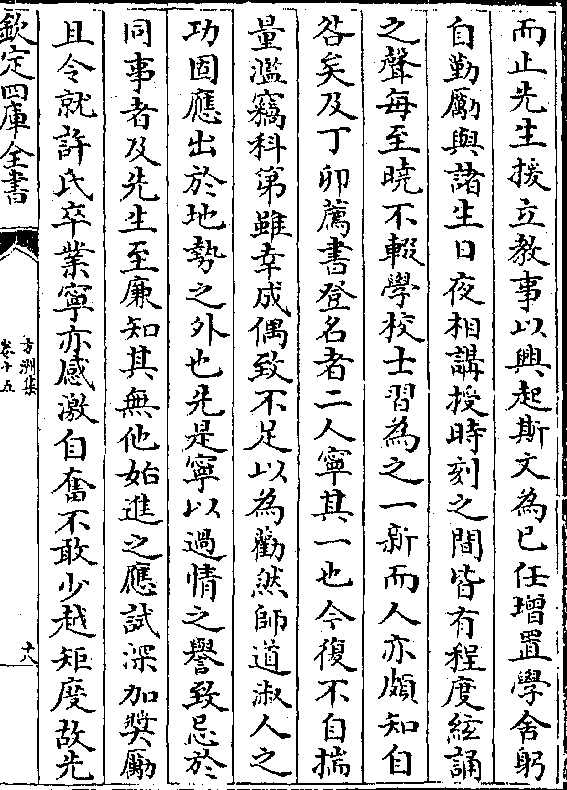 而止先生援立教事以興起斯文為已任增置學舎躬
自勤勵與諸生日夜相講授時刻之間皆有程度絃誦
之聲每至曉不輟學校士習為之一新而人亦頗知自
咎矣及丁卯薦書登名者二人寧其一也今復不自揣
量濫竊科第雖幸成偶致不足以為勸然師道淑人之
功固應出於地勢之外也先是寧以過情之譽致忌於
同事者及先生至廉知其無他始進之應試深加奬勵
且令就許氏卒業寧亦感激自奮不敢少越矩度故先
欽定四庫全書
方洲集
卷十五
十八